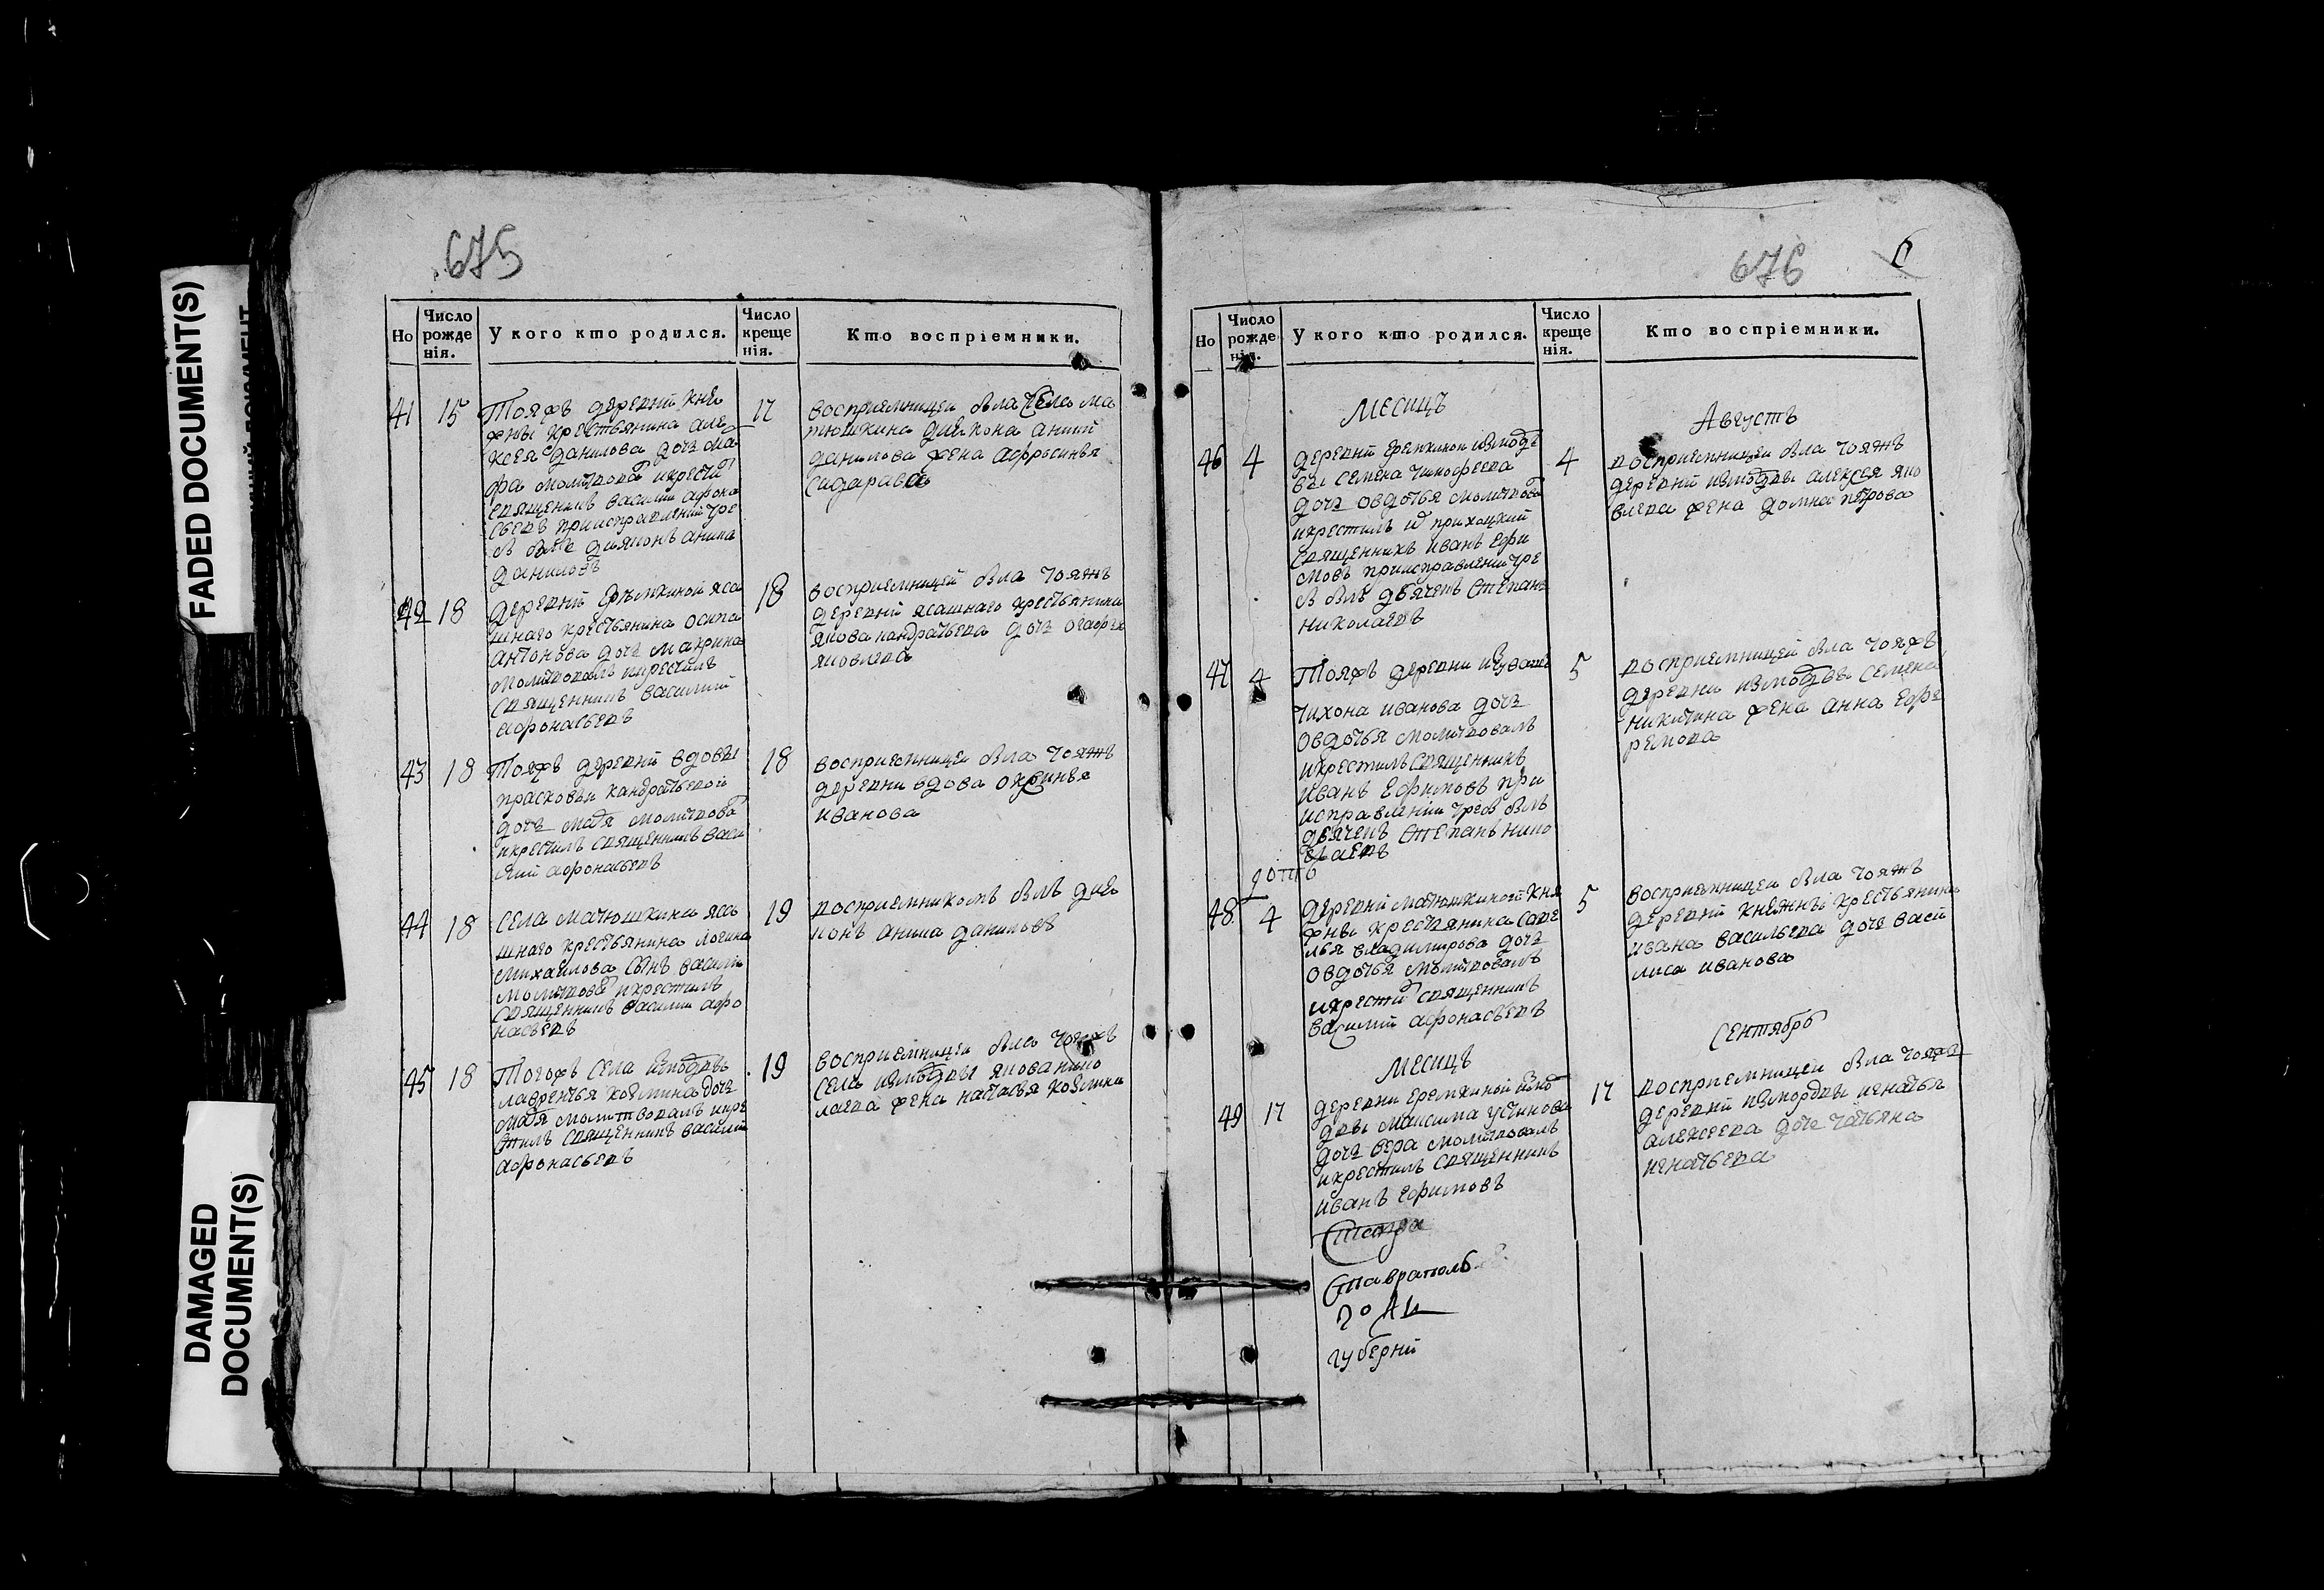 FADED DOCUMENT(S)
DAMAGED
DOCUMENT(S)
675
Но
Число рожде нія.
У кого кто родился.
Число креще нія.
Кто воспріемники.
41 15 17
Тояжъ деревни кне
жны крестьянина але
ксея данилова дочь ма
молитвовалъ и крести
священникъ василий афона
сьевъ приисправлении тре
былъ диаконъ аника
даниловъ
восприемницей была села ма
тюшкина диакона аники
данилова жена афросинья
сидарава
42 18 18
деревни еремкиной яса
шнаго крестьянина осипа
антонова дочь макрина
молитвовалъ и крестилъ
священникъ василий
афонасьевъ
восприемницей была тояжъ
деревни ясашнаго крестьянина
якова кандратьева дочь
яковлева
43 18 18
Тояжъ деревни вдовы
прасковьи кандратьевой
дочь молитвова
и крестилъ священникъ васи
лий афонасьевъ
восприемницей была тояжъ
деревни вдова оксинья
иванова
44 18 19
села матюшкина яса
шнаго крестьянина логина
михайлова сынъ василий
молитвова и крестилъ
священникъ василий афо
насьевъ
восприемникомъ былъ диа
конъ аника даниловъ
45 18 19
Тогожъ села измордвы
лаврентья козмина дочь
молитвовалъ и кре
стилъ священникъ василий
афонасьевъ
восприемницей была тогожъ
села измордвы якова нико
лаева жена настасья козмина
676
Но
Число рожде нія.
У кого кто родился.
Число креще нія.
Кто воспріемники.
Месицъ Августъ
46 4 4
деревни еремкиной измор
вы семена тимофеева
дочь овдотья молитвова
и крестилъ приходский
священникъ иванъ ефи
мовъ приисправлении тре
былъ дьячекъ степанъ
николаевъ
восприемницей была тояжъ
деревни измордвы алексея яко
влева жена домна петрова
47 4 5
Тояжъ деревни
тихона иванова дочь
овдотья молитвовалъ
и крестилъ священникъ
иванъ ефимовъ при
исправлении требъ былъ
дьячекъ степанъ нико
лаевъ
восприемницей была тояжъ
деревни измордвы семена
никитина жена анна ефр
ремова
48 4 5
деревни матюшкиной кня
жны крестьянина саве
лья владимирова дочь
овдотья молитвовалъ
и крести священникъ
василий афонасьевъ
восприемницей была тояжъ
деревни княжны крестьянина
ивана васильева дочь васи
лиса иванова
Месицъ Сентябрь
49 17 17
деревни еремкиной измо
рдвы максима устинова
дочь вера молитвовалъ
и крестилъ священникъ
иванъ ефимовъ
восприемницей была тояжъ
деревни измордвы игнатья
алексеева дочь татьяна
игнатьева
Ставраполь
губерни